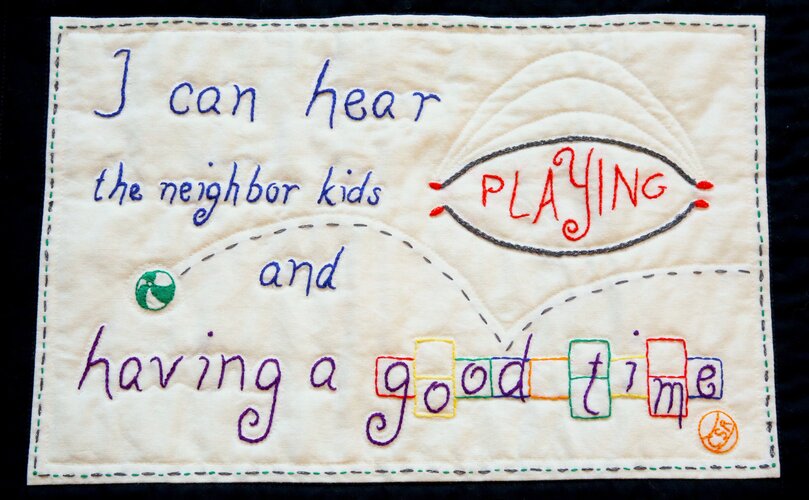 I can hear
the neighbor kids
PLAYING
and
having a good time
CSR